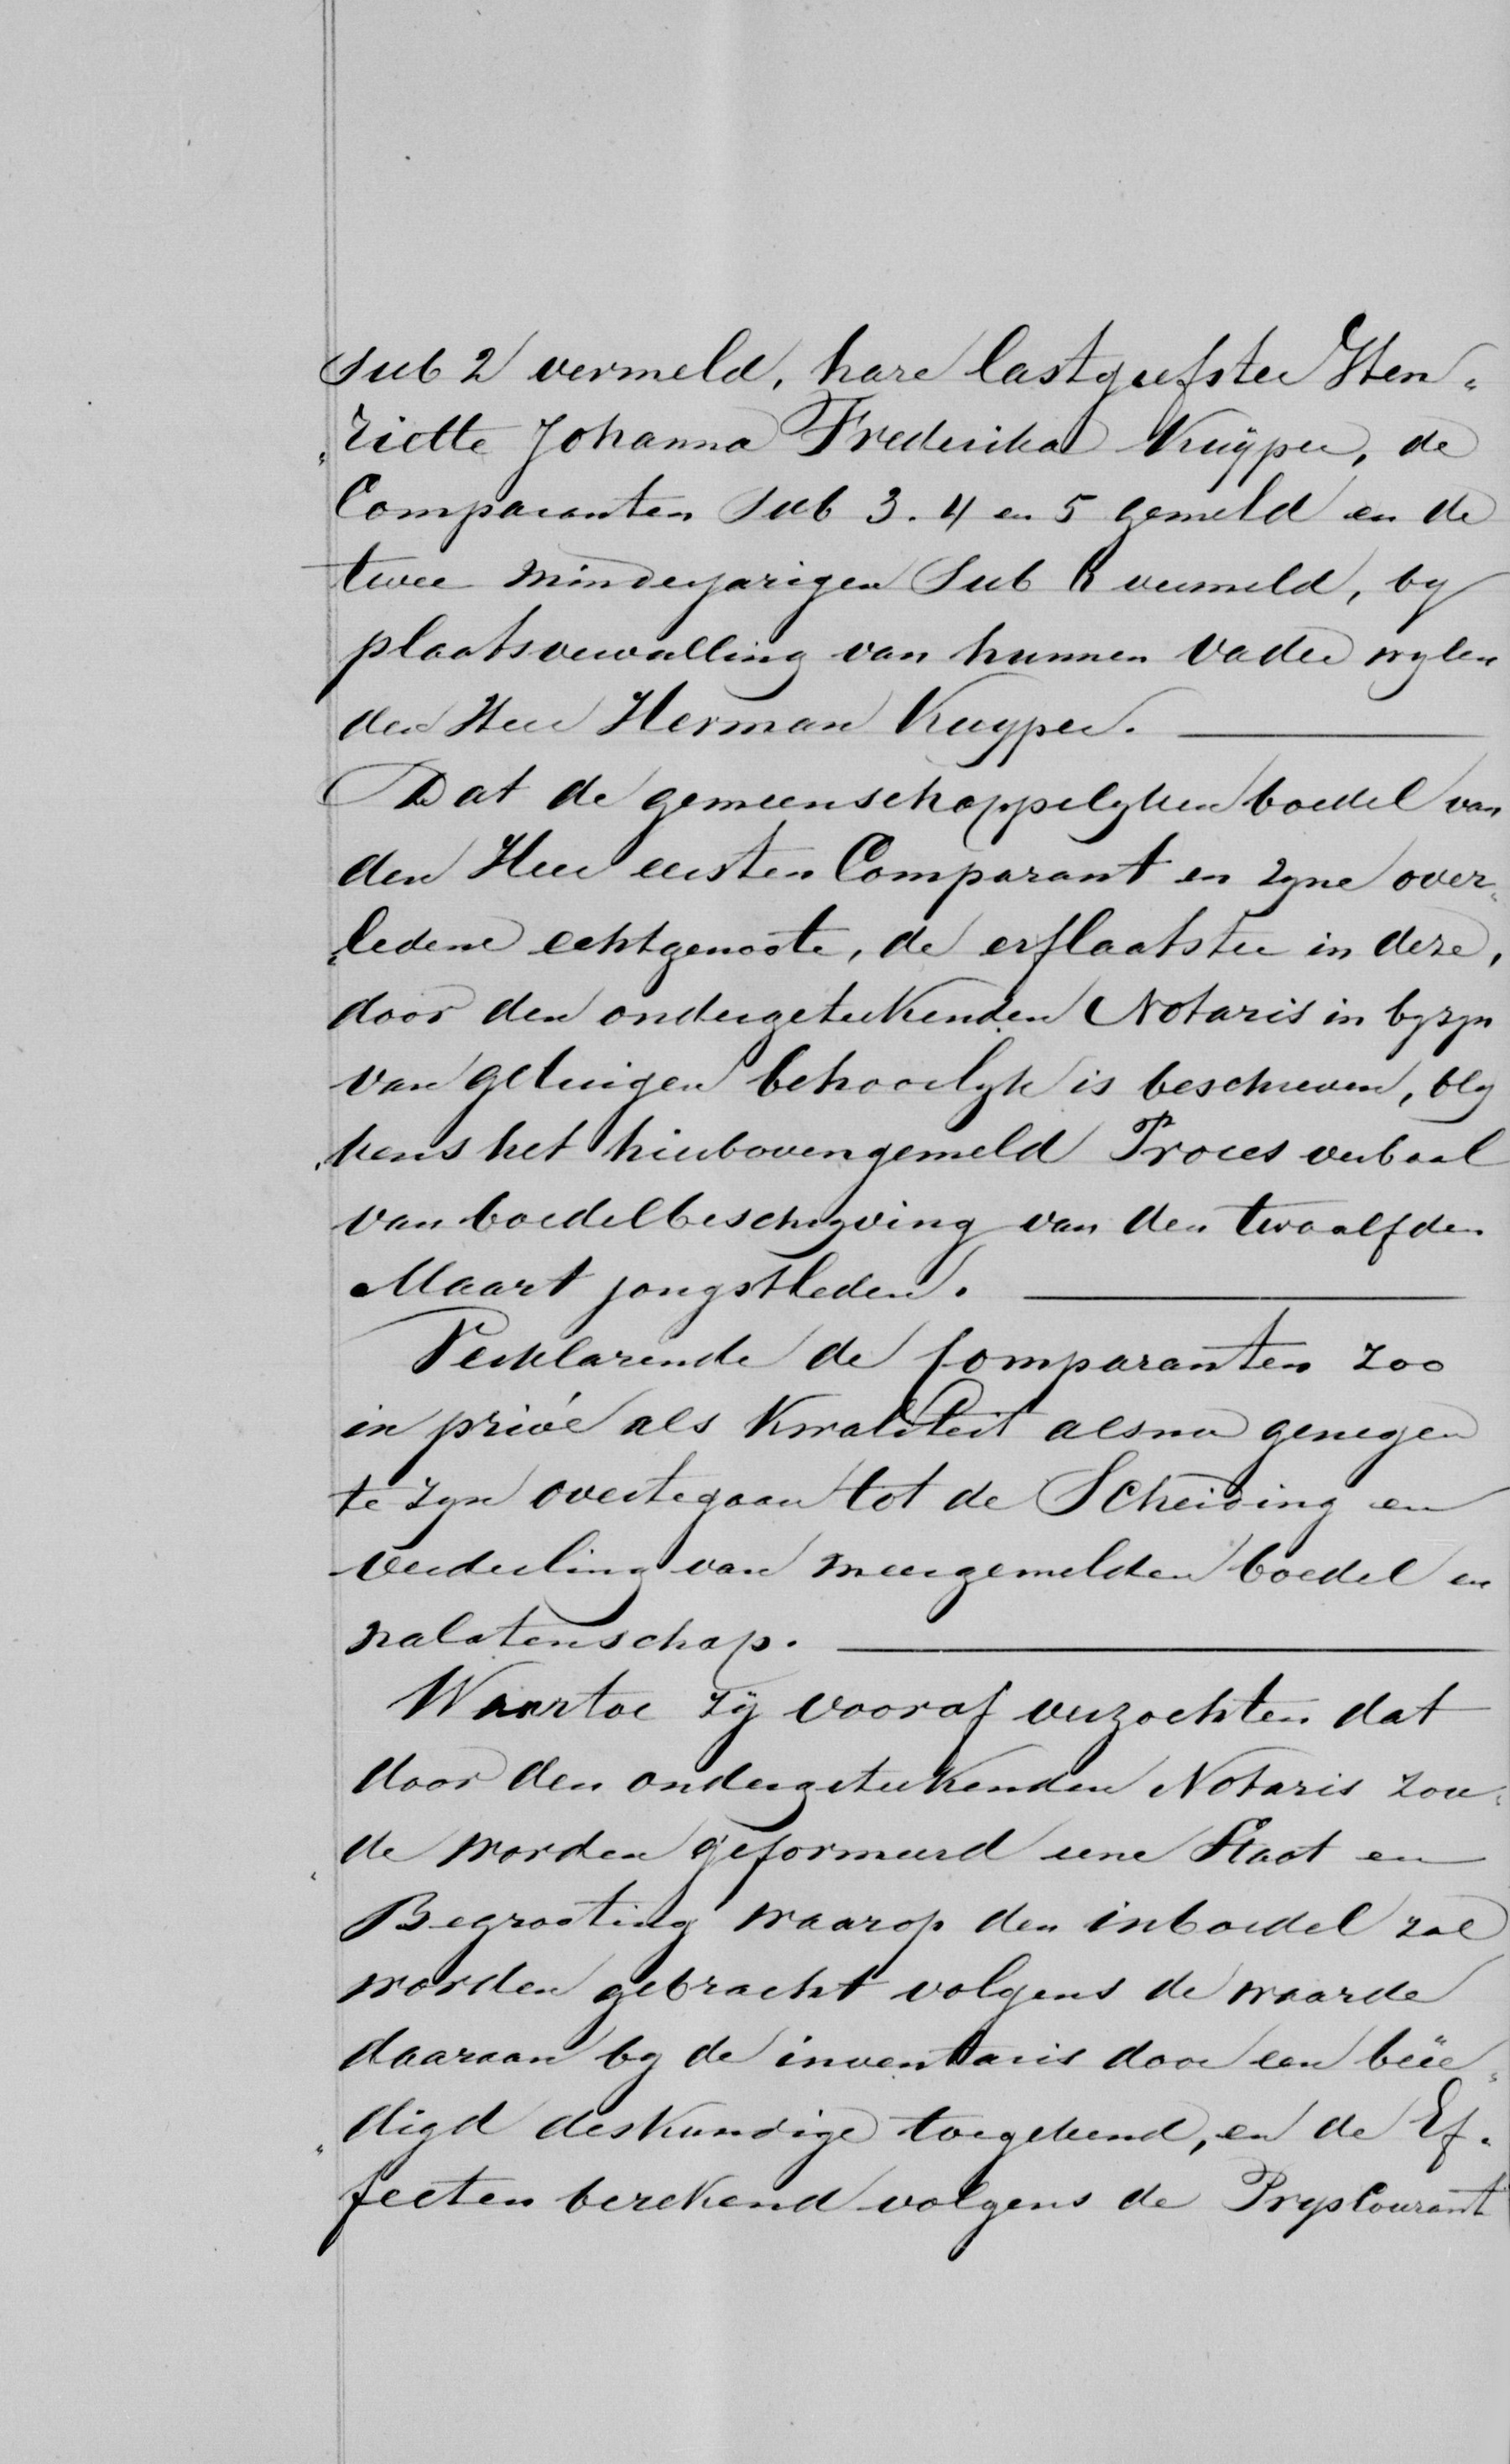 sub 2 vermeld, hare lastgeefster Hen„
„riette Johanna Frederika Kuÿper, de
Comparanten sub 3. 4 en 5 gemeld en de
twee minderjarigen sub 6 vermeld, by
plaatsvervulling van hunnen vader wylen
den Heer Herman Kuyper.
Dat de gemeenschappelyken boedel van
den Heer eersten Comparant en zyne over„
„ledene echtgenoote, de erflaatster in deze,
door den ondergeteekenden Notaris in byzyn
van getuigen behoorlyk is beschreven, bly
„kens het hierbovengemeld Proces verbaal
van boedelbeschryving van den twaalfden
Maart jongstleden.
Verklarende de Comparanten zoo
in privé als kwaliteit alsnu genegen
te zyn overtegaan tot de Scheiding en
verdeeling van meergemelden boedel en
nalatenschap.
Waartoe zÿ vooraf verzochten dat
door den ondergeteekenden Notaris zou„
„de worden geformeerd eene Staat en
Begrooting waarop den inboedel zal
worden gebracht volgens de waarde
daaraan by de inventaris door een beëe„
„digd deskundige toegekend, en de Ef„
fecten berekend volgens de Pryscourant